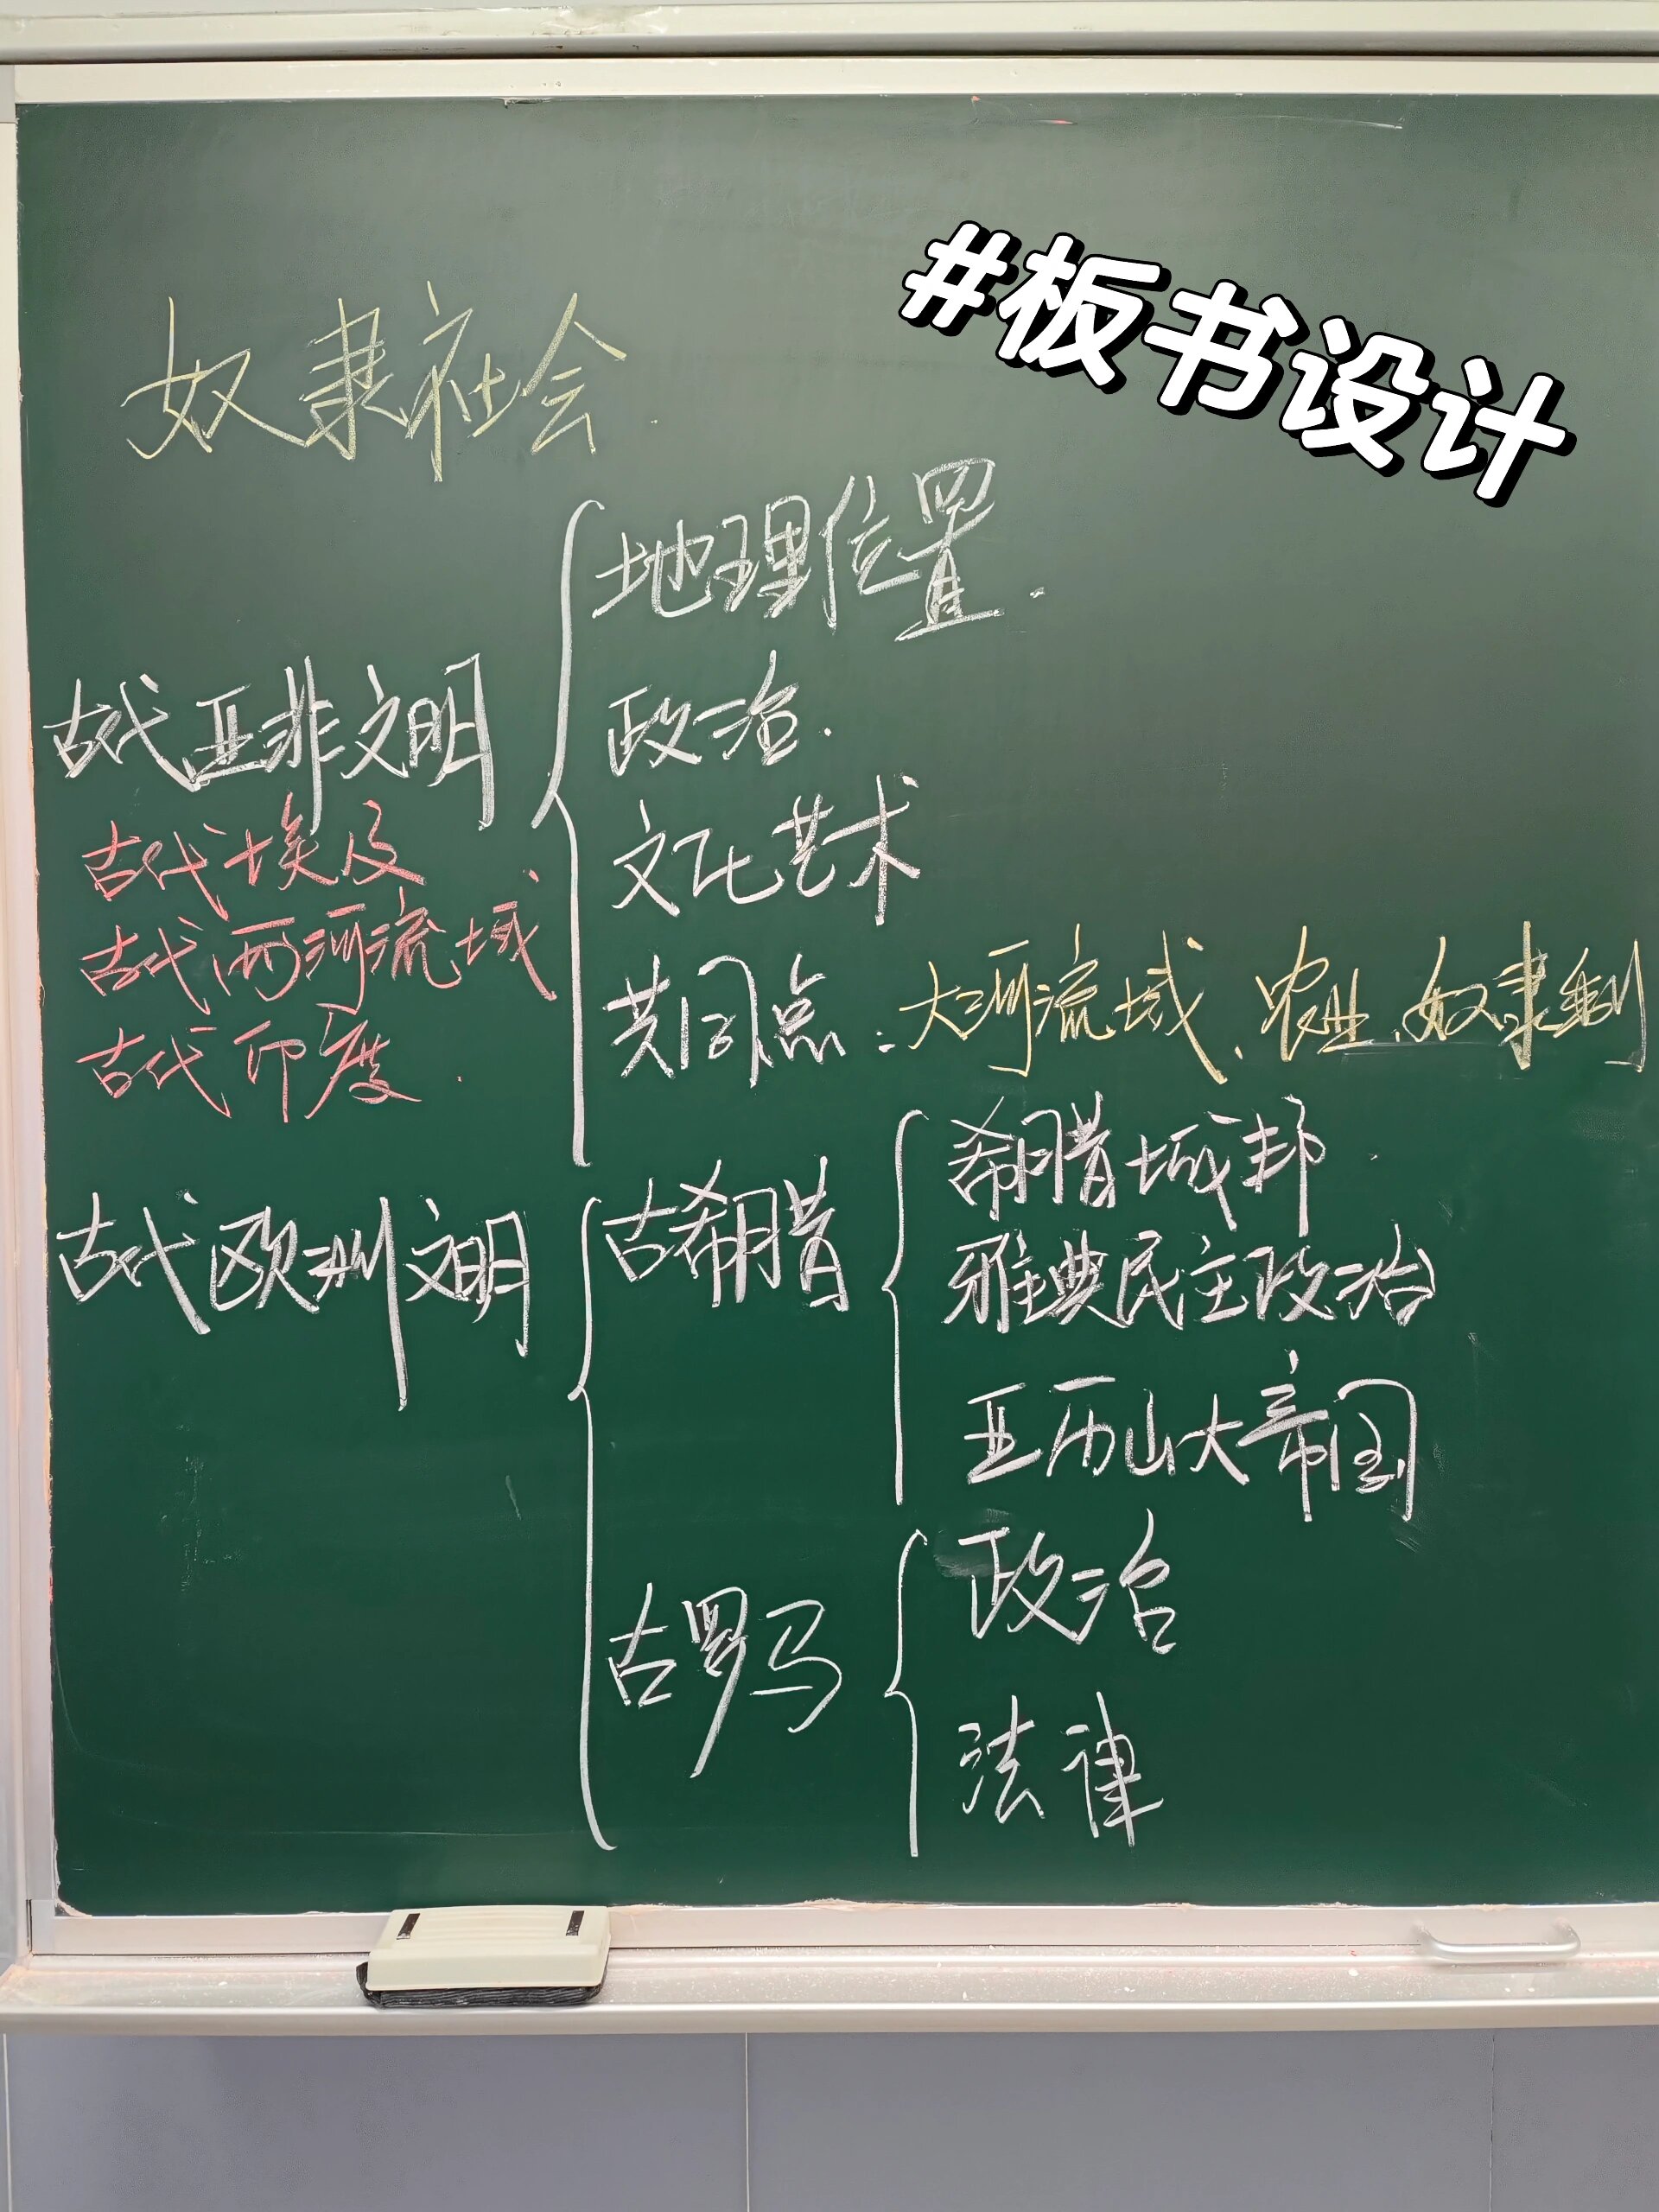 #板书设计
奴隶社会
古代亚非文明
古代埃及
古代两河流域
古代印度
地理位置
政治
文化艺术
共同点：大河流域、农业、奴隶制
古代欧洲文明
古希腊
希腊城邦
雅典民主政治
亚历山大帝国
古罗马
政治
法律